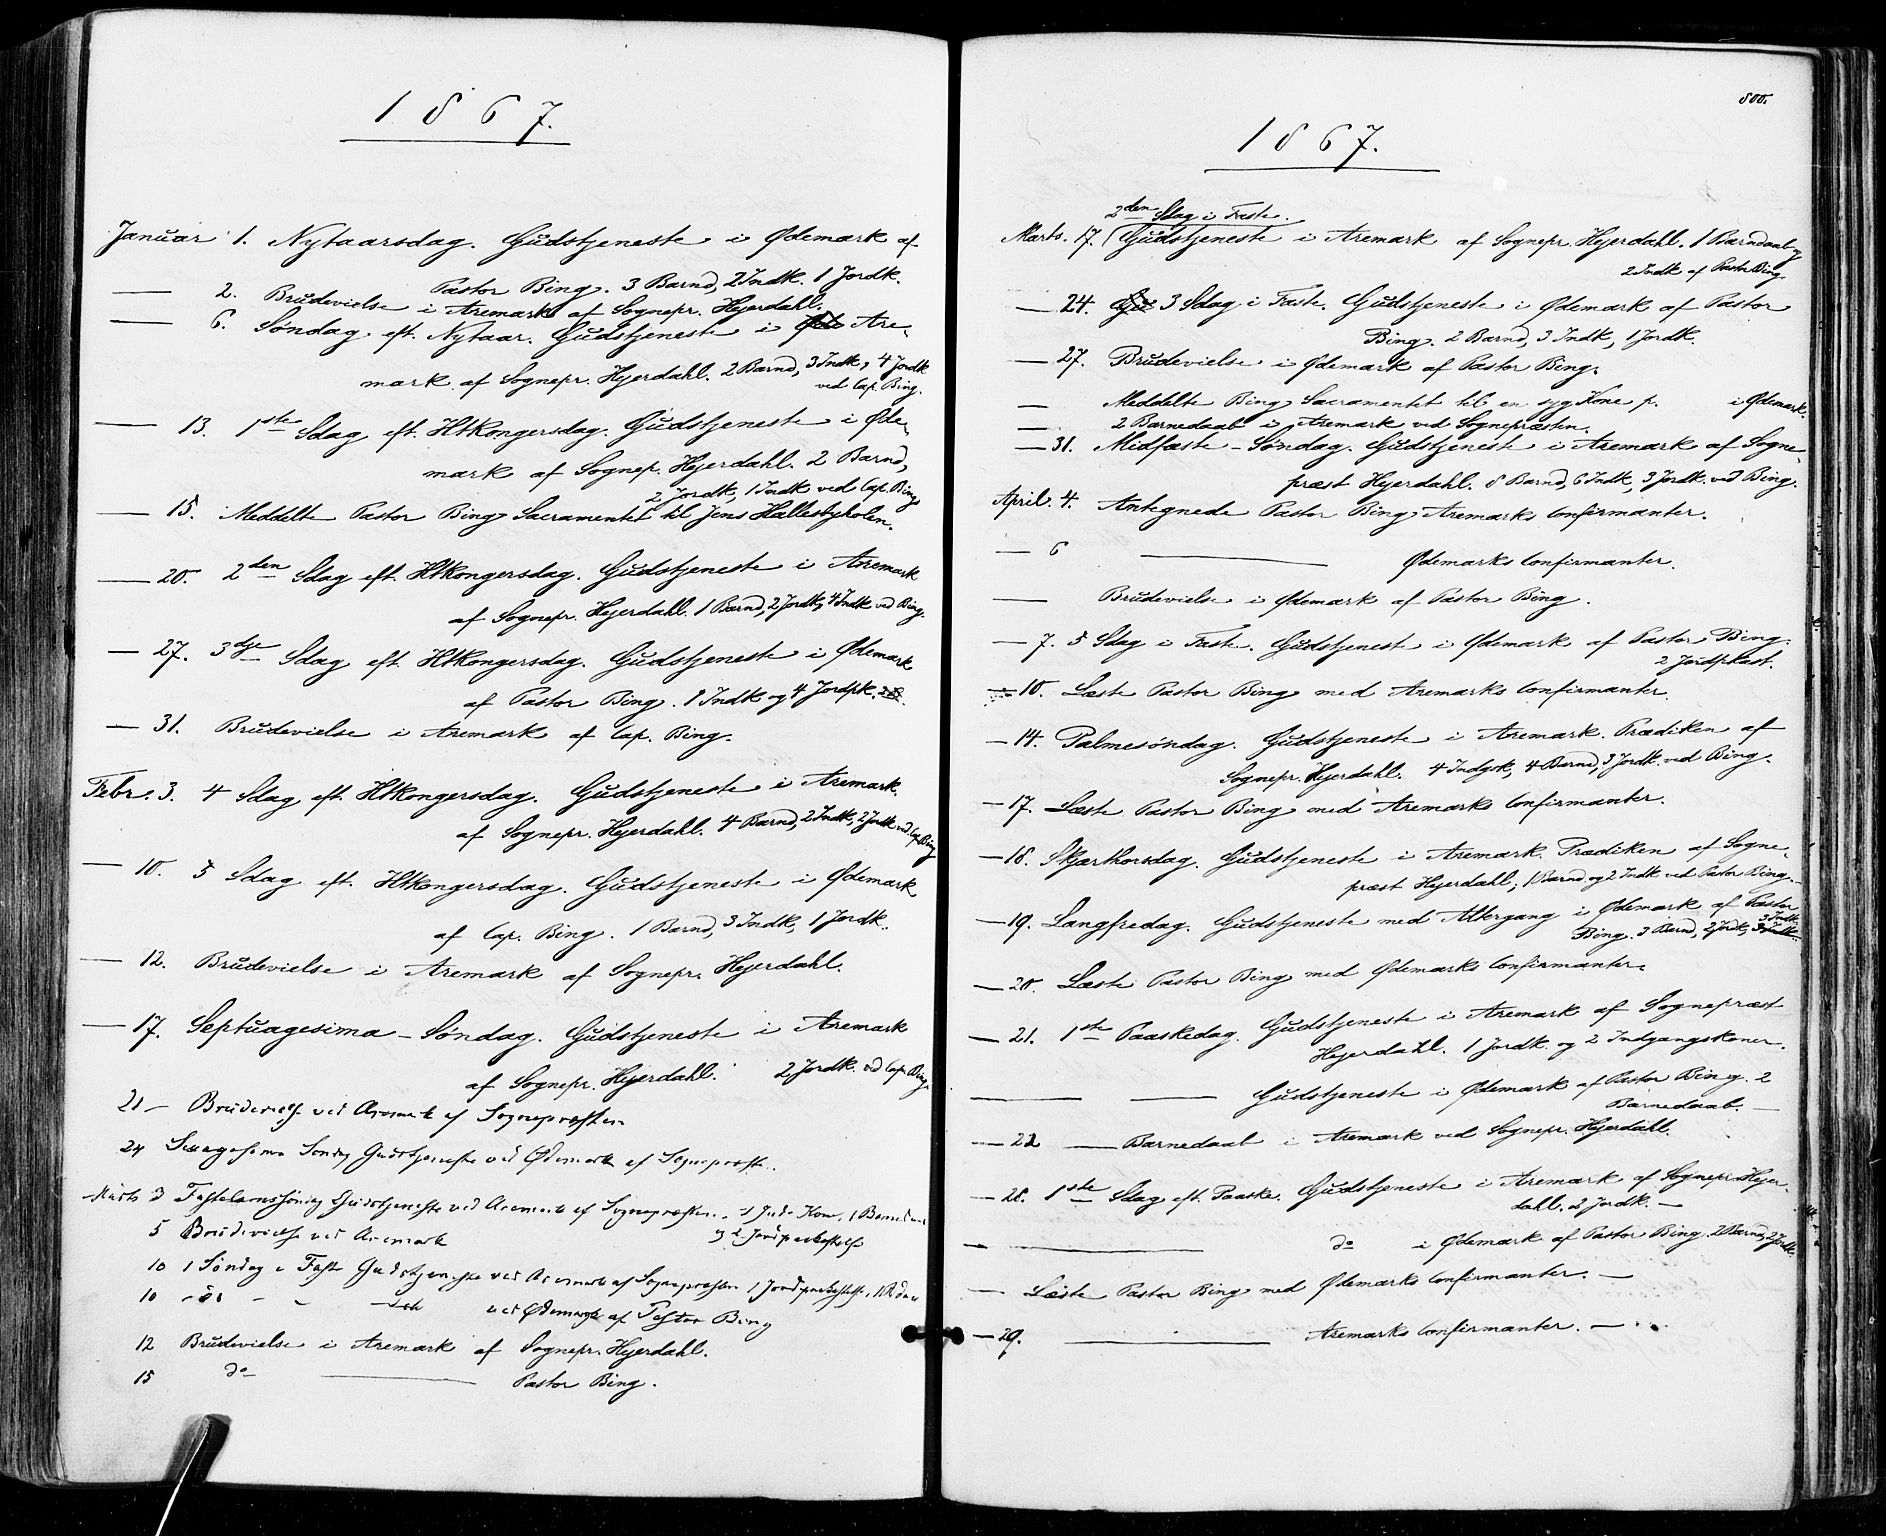 1867.
Januar 1. Nytaarsdag. Gudstjeneste i Ødemark af
Pastor Bing. 3 Barnd, 2 Indk. 1 Jordk.
— 2. Brudevielse i Aremark af Sognepr. Hejerdahl.
— 6. Søndag eft. Nytaar. Gudstjeneste i Øde Are-
mark af Sognepr. Hejerdahl. 2 Barnd, 3 Indk, 4 Jordk
ved Cap. Bing.
— 13. 1ste Sdag eft. Htkongersdag. Gudstjeneste i Øde-
mark af Sognep. Hejerdahl. 2 Barnd,
2 Jordk, 1 Indk ved Cap. Bing
— 15. Meddelte Pastor Bing Sacramentet til Jens Hallesbyholen.
— 20. 2den Sdag eft. Htkongersdag. Gudstjeneste i Aremark
af Sognepr. Hejerdahl. 1 Barnd, 2 Jordk, 4 Indk ved Bing.
— 27. 3dje Sdag eft. Htkongersdag. Gudstjeneste i Ødemark
af Pastor Bing. 1 Indk og 4 Jordpk.
— 31. Brudevielse i Aremark af Cap. Bing.
Febr. 3. 4 Sdag eft. Htkongersdag. Gudstjeneste i Aremark.
af Sognepr. Hejerdahl. 4 Barnd, 2 Indk, 2 Jordk ved Cap Bing
— 10. 5 Sdag eft. Htkongersdag. Gudstjeneste i Ødemark
af Cap. Bing. 1 Barnd, 3 Indk, 1 Jordk.
— 12. Brudevielse i Aremark af Sognepr. Hejerdahl.
— 17. Septuagesima-Søndag. Gudstjeneste i Aremark
af Sognepr. Hejerdahl. 2 Jordk. ved Cap. Bing.
21 — Brudevielse ved Aremark af Sognepræsten
24 Sexagesima Søndag Gudstjeneste ved Ødemark af Sognepræsten.
Marts 3 Fastelavnssøndag Gudstjeneste ved Aremark af Sognepræsten. Indk Kone, 1 Barnedaab
5 Brudevielse ved Aremark og 2 Jordpaakastelse
10 1 Søndag i Faste Gudstjeneste ved Aremark af Sognepræsten 1 Jordpaakastelse,
10 ved Ødemark af Pastor Bing
12 Brudevielse i Aremark af Sognepr. Hejerdahl.
15 do — Pastor Bing.
800.
1867.
2den Sdag i Faste.
Marts. 17. Gudstjeneste i Aremark af Sognepr. Hejerdahl. 1 Barndaab og
2 Indk af Pastor Bing.
— 24. Gu 3 Sdag i Faste. Gudstjeneste i Ødemark af Pastor
Bing. 2 Barnd, 3 Indk, 1 Jordk.
— 27. Brudevielse i Ødemark af Pastor Bing.
— Meddelte Bing Sacramentet til en syg Kone p. i Ødemark.
— 2 Barnedaab i Aremark ved Sognepræsten.
— 31. Midfaste-Søndag. Gudstjeneste i Aremark af Sogne-
præst Hejerdahl. 8 Barnd, 6 Indk, 3 Jordk. ved Bing.
April. 4. Antegnede Pastor Bing Aremarks Confirmanter.
— 6 — Ødemarks Confirmanter.
— Brudevielse i Ødemark af Pastor Bing.
— 7. 5 Sdag i Faste. Gudstjeneste i Ødemark af Pastor Bing.
2 Jordpkast.
— 10. Læste Pastor Bing med Aremarks Confirmanter.
— 14. Palmesøndag. Gudstjeneste i Aremark. Prædiken af
Sognepr. Hejerdahl. 4 Indgk, 4 Barnd, 3 Jordk. ved Bing.
— 17. Læste Pastor Bing med Aremarks Confirmanter.
— 18. Skjærthorsdag. Gudstjeneste i Aremark. Prædiken af Sogne-
præst Hejerdahl; 1 Barnd. og 2 Indk ved Pastor Bing.
— 19. Langfredag. Gudstjeneste med Altergang i Ødemark af Pastor
Bing. 3 Barnd, 2 Jordk, 3 Indk.
— 20. Læste Pastor Bing med Ødemarks Confirmanter.
— 21. 1ste Paaskedag. Gudstjeneste i Aremark af Sognepræst
Hejerdahl. 1 Jordk. og 2 Indgangskoner.
— — Gudstjeneste i Ødemark af Pastor Bing. 2
Barnedaab. —
— 22 — Barnedaab i Aremark ved Sognepr. Hejerdahl.
— 28. 1ste Sdag eft. Paaske. Gudstjeneste i Aremark af Sognepr. Hejer-
dahl. 2 Jordk. —
— — do i Ødemark af Pastor Bing. 2 Barnd, 2 Jordk.
— Læste Pastor Bing med Ødemarks Confirmanter. —
— 29. — Aremarks Confirmanter. —